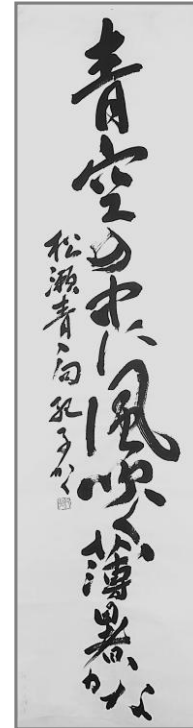 青空の中に風吹く薄暑かな
松瀬青々句 紀子かく